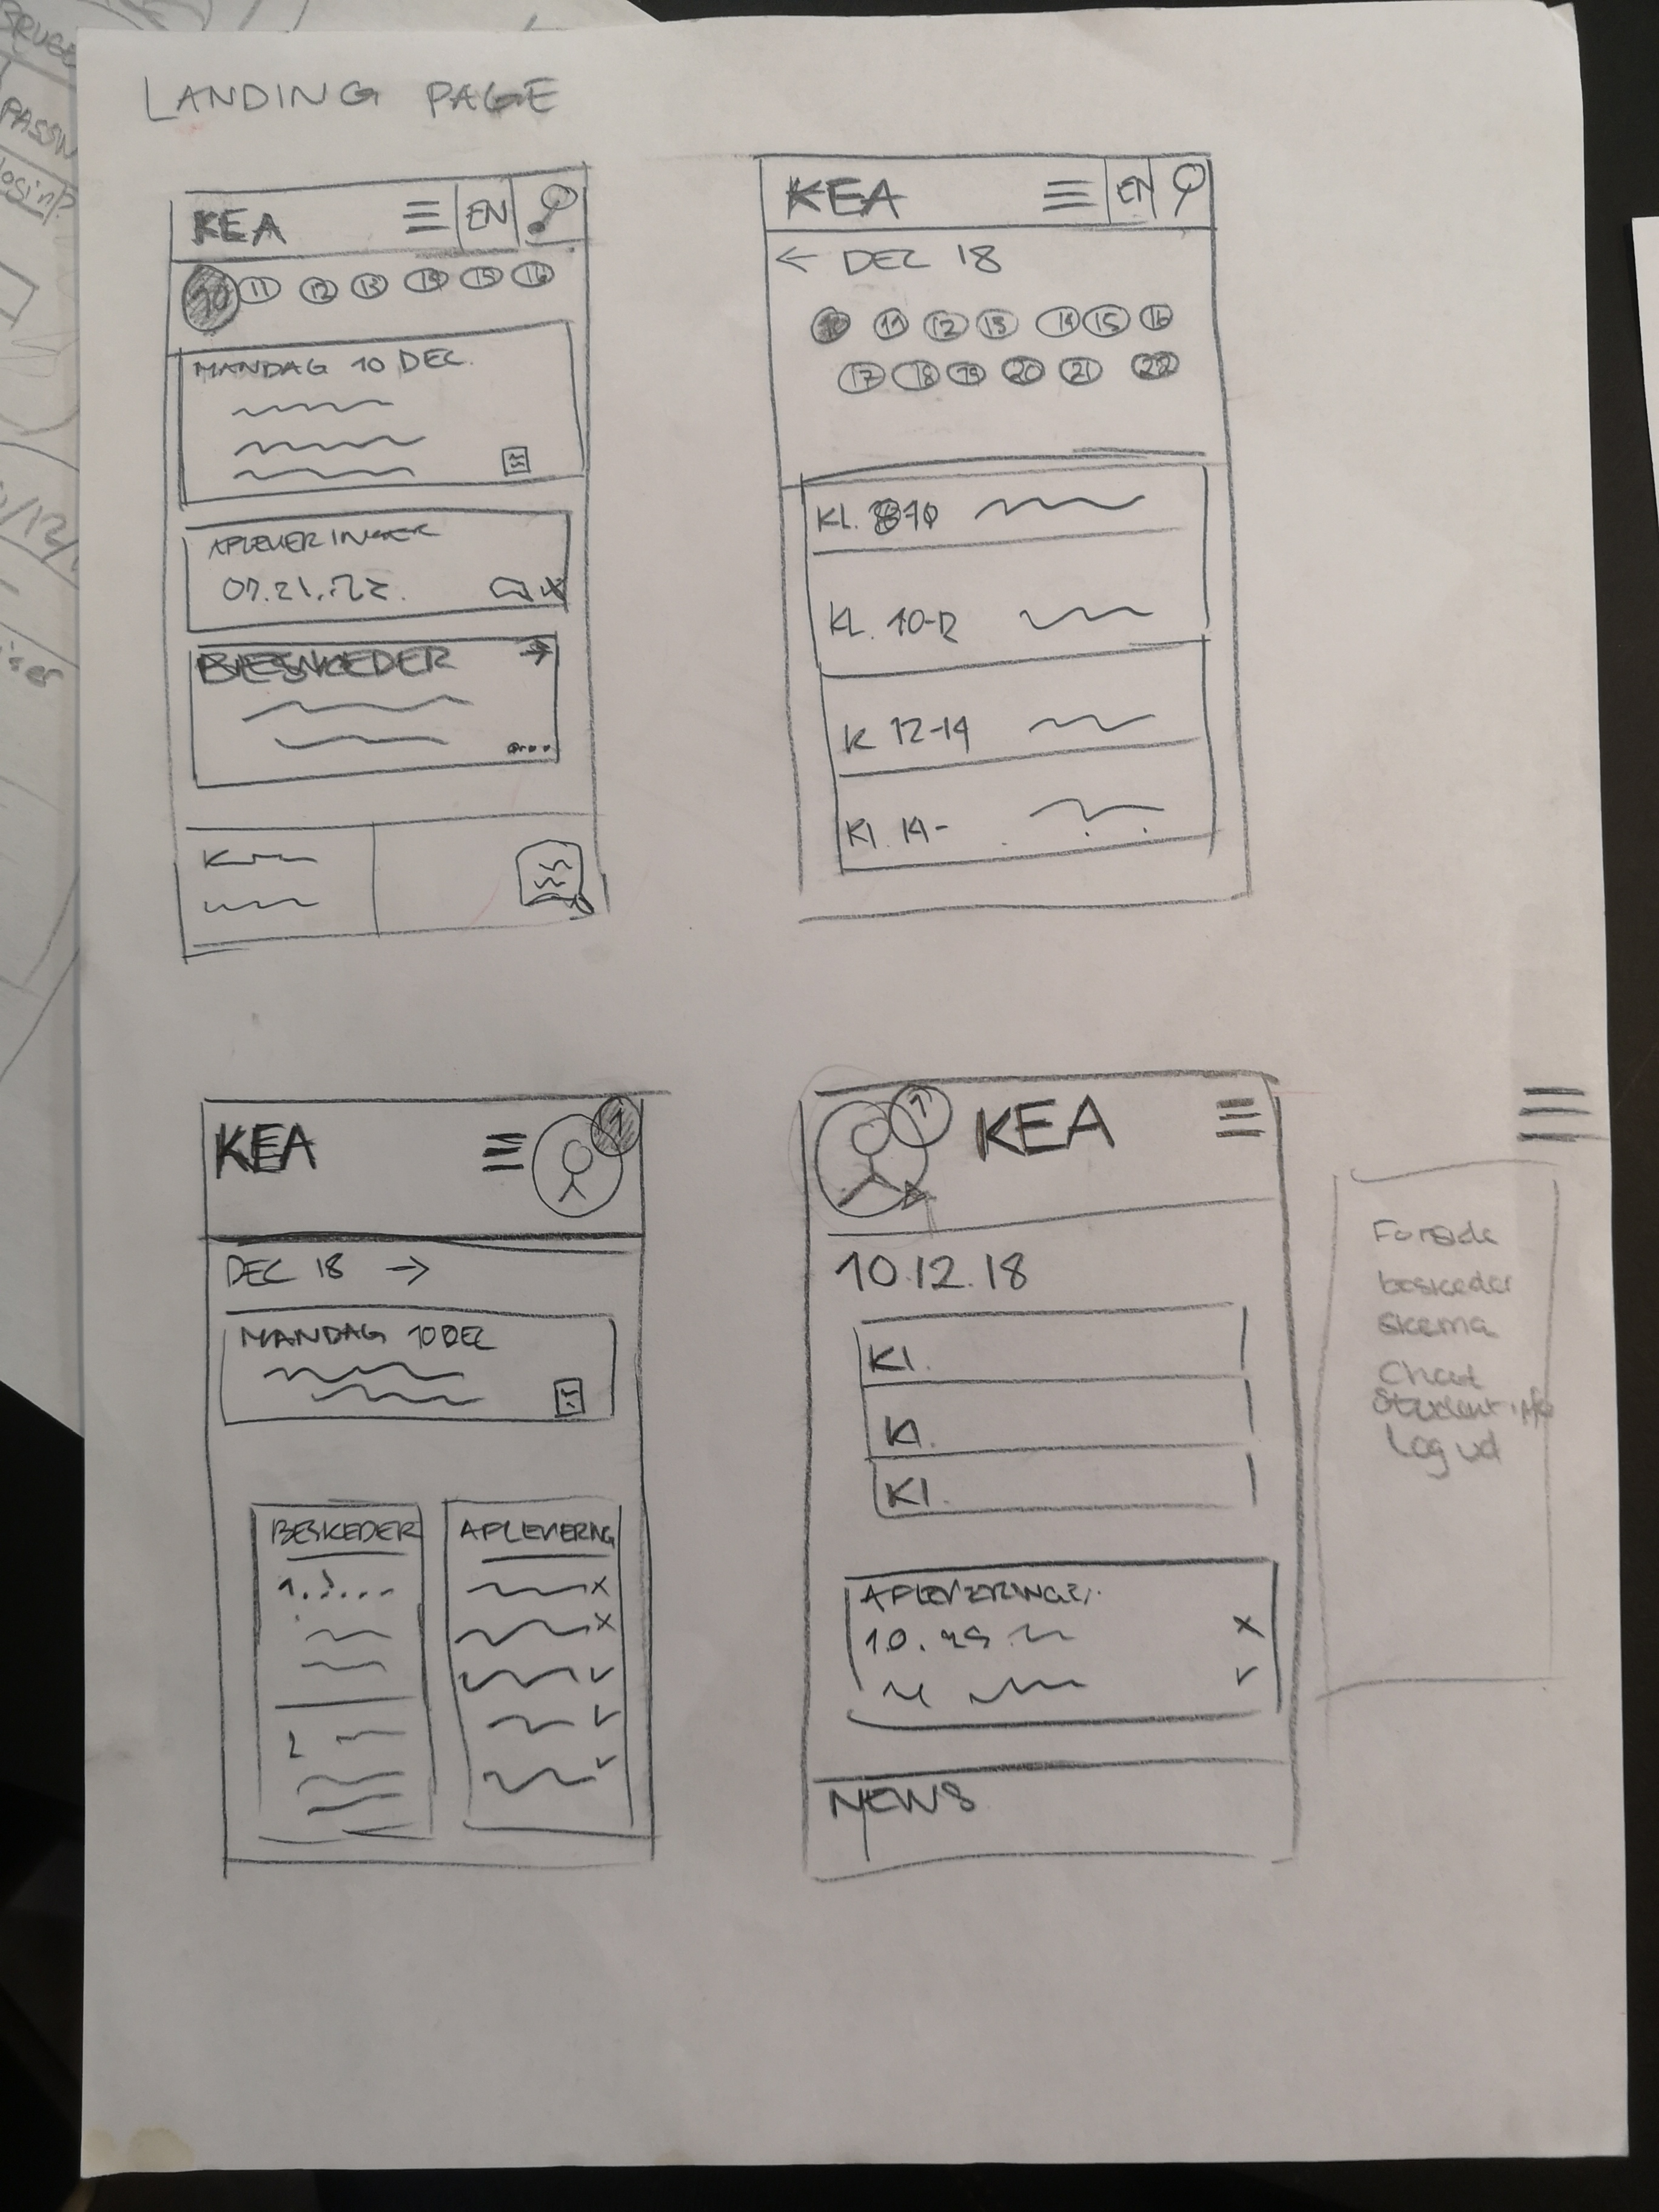 LANDING PAGE
KEA EN
10 11 12 13 14 15 16
MANDAG 10 DEC.
APLEVERINGER
BESKEDER
KEA EN
← DEC 18
10 11 12 13 14 15 16
17 18 19 20 21 22
KL. 8-10
KL. 10-12
K 12-14
Kl. 14-
KEA 1
DEC 18 →
MANDAG 10 DEC
BESKEDER
1.
2
APLEVERING
x
x
✓
✓
✓
1 KEA
10.12.18
Kl.
Kl.
Kl.
APLEVERINGER
10. x
✓
NEWS
Forside
beskeder
skema
Chat
Student info
Log ud
PASSW
login?